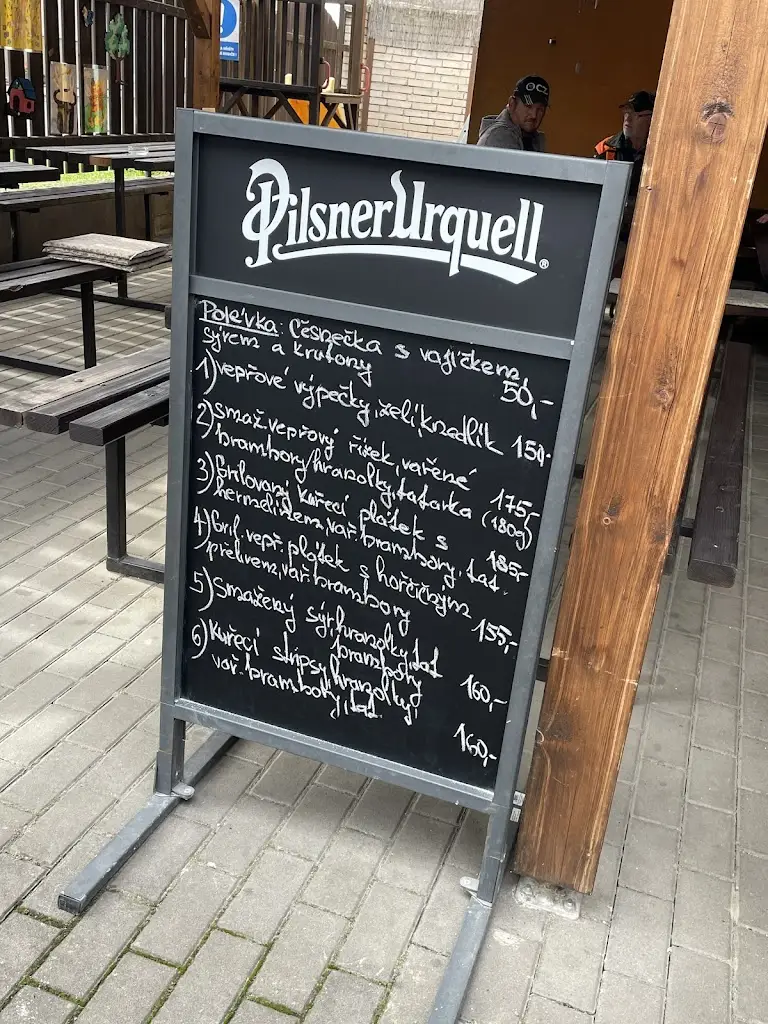 Pilsner Urquell®
Polévka: Česnečka s vajíčkem,
sýrem a krutony 50,-
1) vepřové výpečky, zelí, knedlík 150,-
2) smaž. vepřový řízek, vařené
brambory/hranolky, tatarka (180g) 175,-
3) Grilovaný kuřecí plátek s
hermelínem, vař. brambory, tat. 185,-
4) Gril. vepř. plátek s hořčičným
přelivem, vař. brambory 155,-
5) Smažený sýr, hranolky, tat
brambory 160,-
6) Kuřecí stripsy, hranolky,
vař. brambory, tat. 160,-